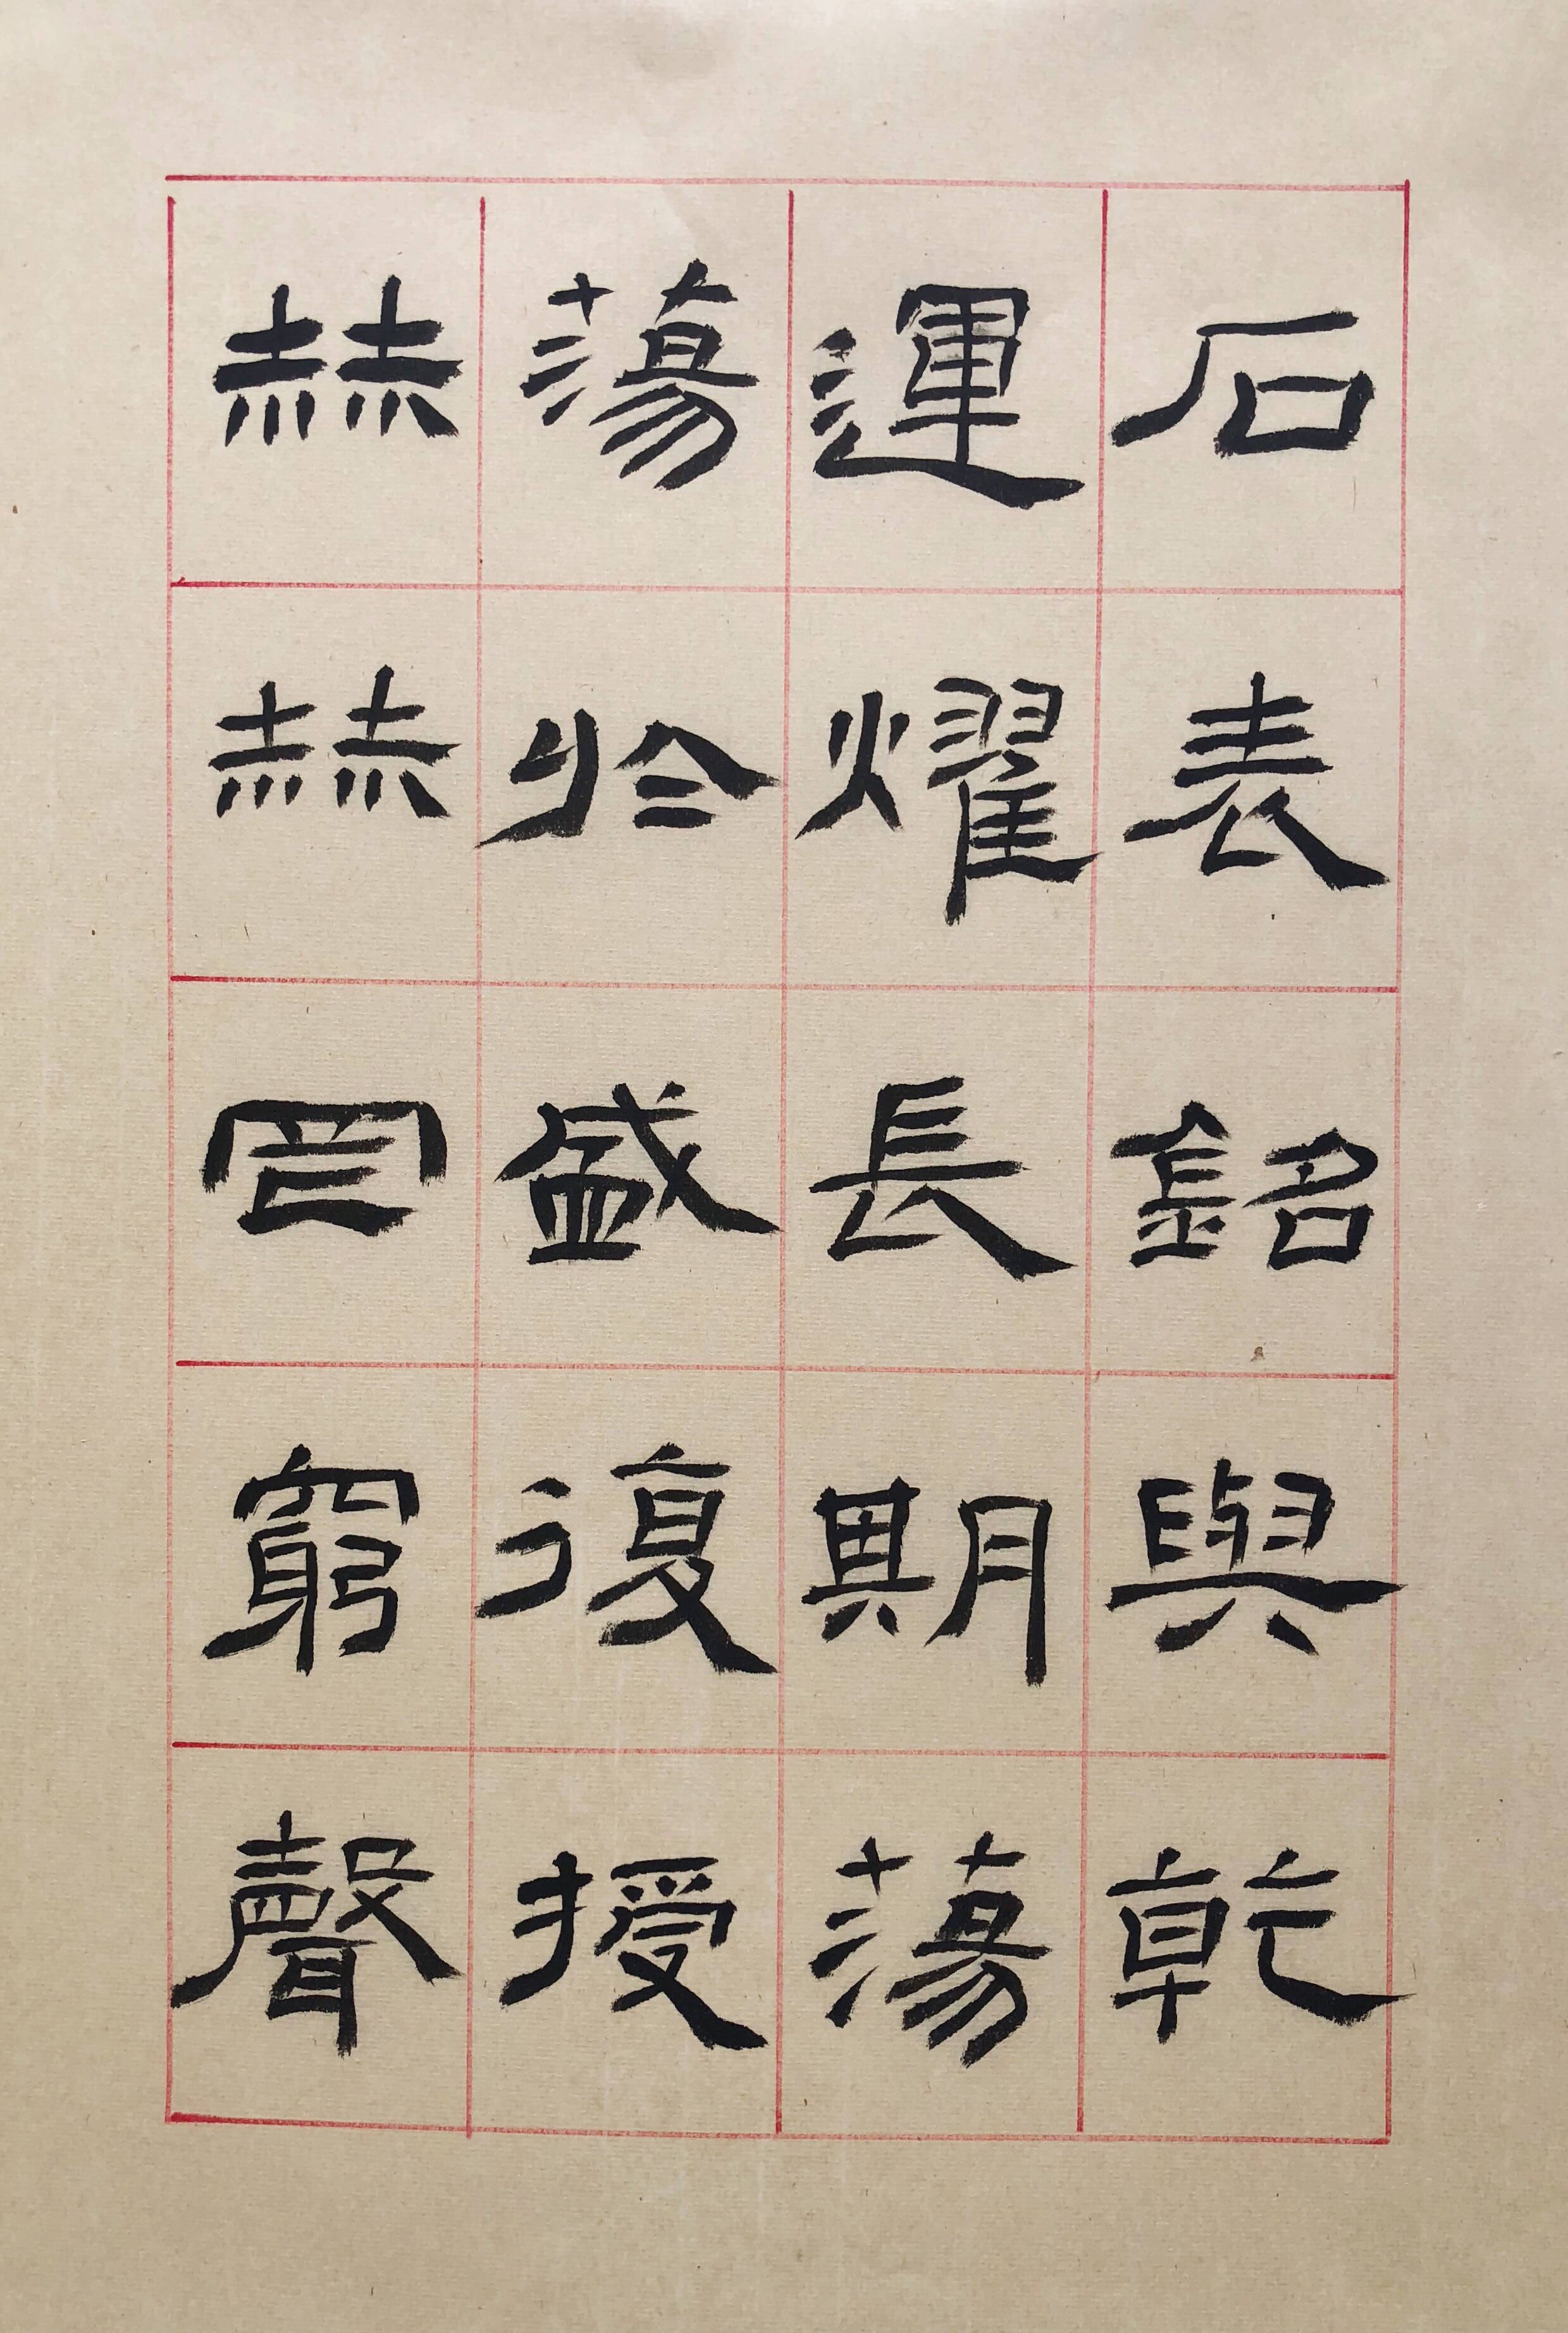 石表銘與乾
運燿長期蕩
蕩於盛復授
赫赫罔窮聲